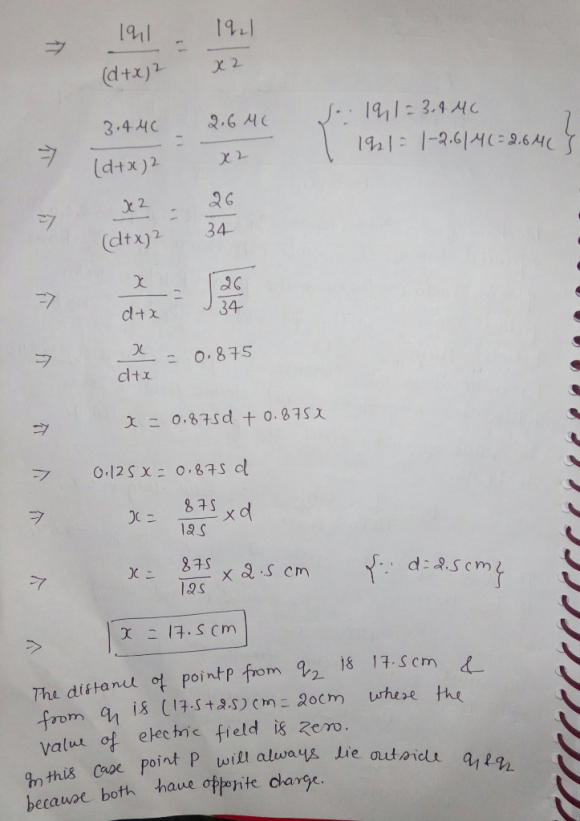 ⇒ |q1|/(d+x)² = |q2|/x²
⇒ 3.4 μC/(d+x)² = 2.6 μC/x² {∵ |q1| = 3.4 μC
|q2| = |-2.6| μC = 2.6 μC}
⇒ x²/(d+x)² = 26/34
⇒ x/d+x = √26/34
⇒ x/d+x = 0.875
⇒ x = 0.875d + 0.875x
⇒ 0.125x = 0.875 d
⇒ x = 875/125 × d
⇒ x = 875/125 × 2.5 cm {∵ d = 2.5 cm}
⇒ x = 17.5 cm
The distance of point p from q2 is 17.5cm &
from q1 is (17.5+2.5)cm = 20cm where the
value of electric field is zero.
In this case point P will always lie outside q1 & q2
because both have opposite charge.